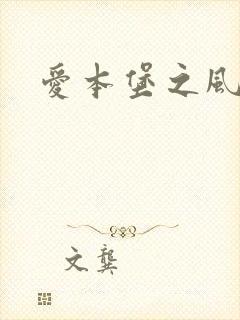 愛本堡之風
文龔